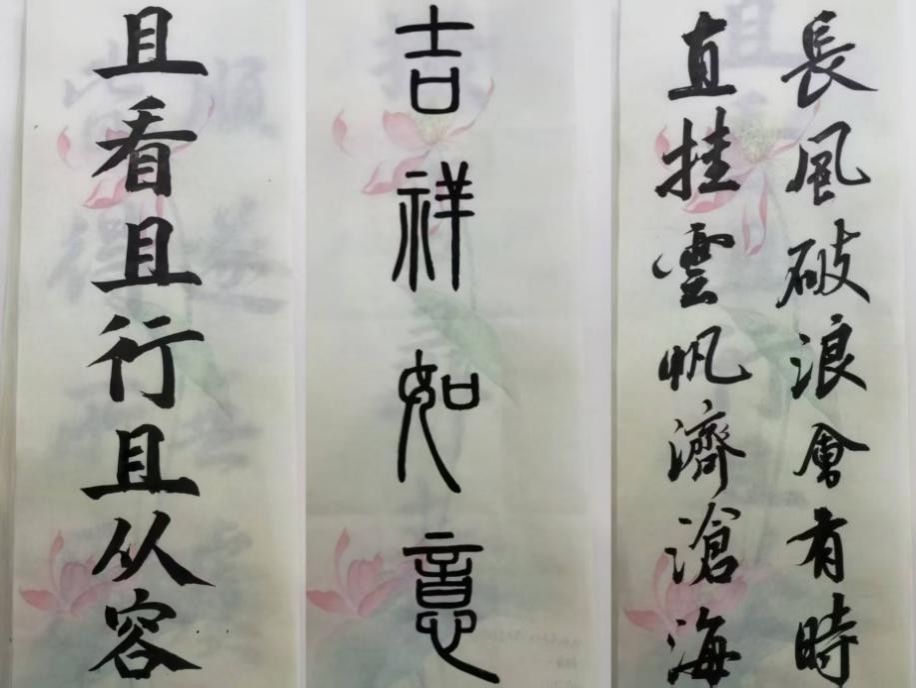 長風破浪會有時
直挂雲帆濟滄海
吉祥如意
且看且行且从容